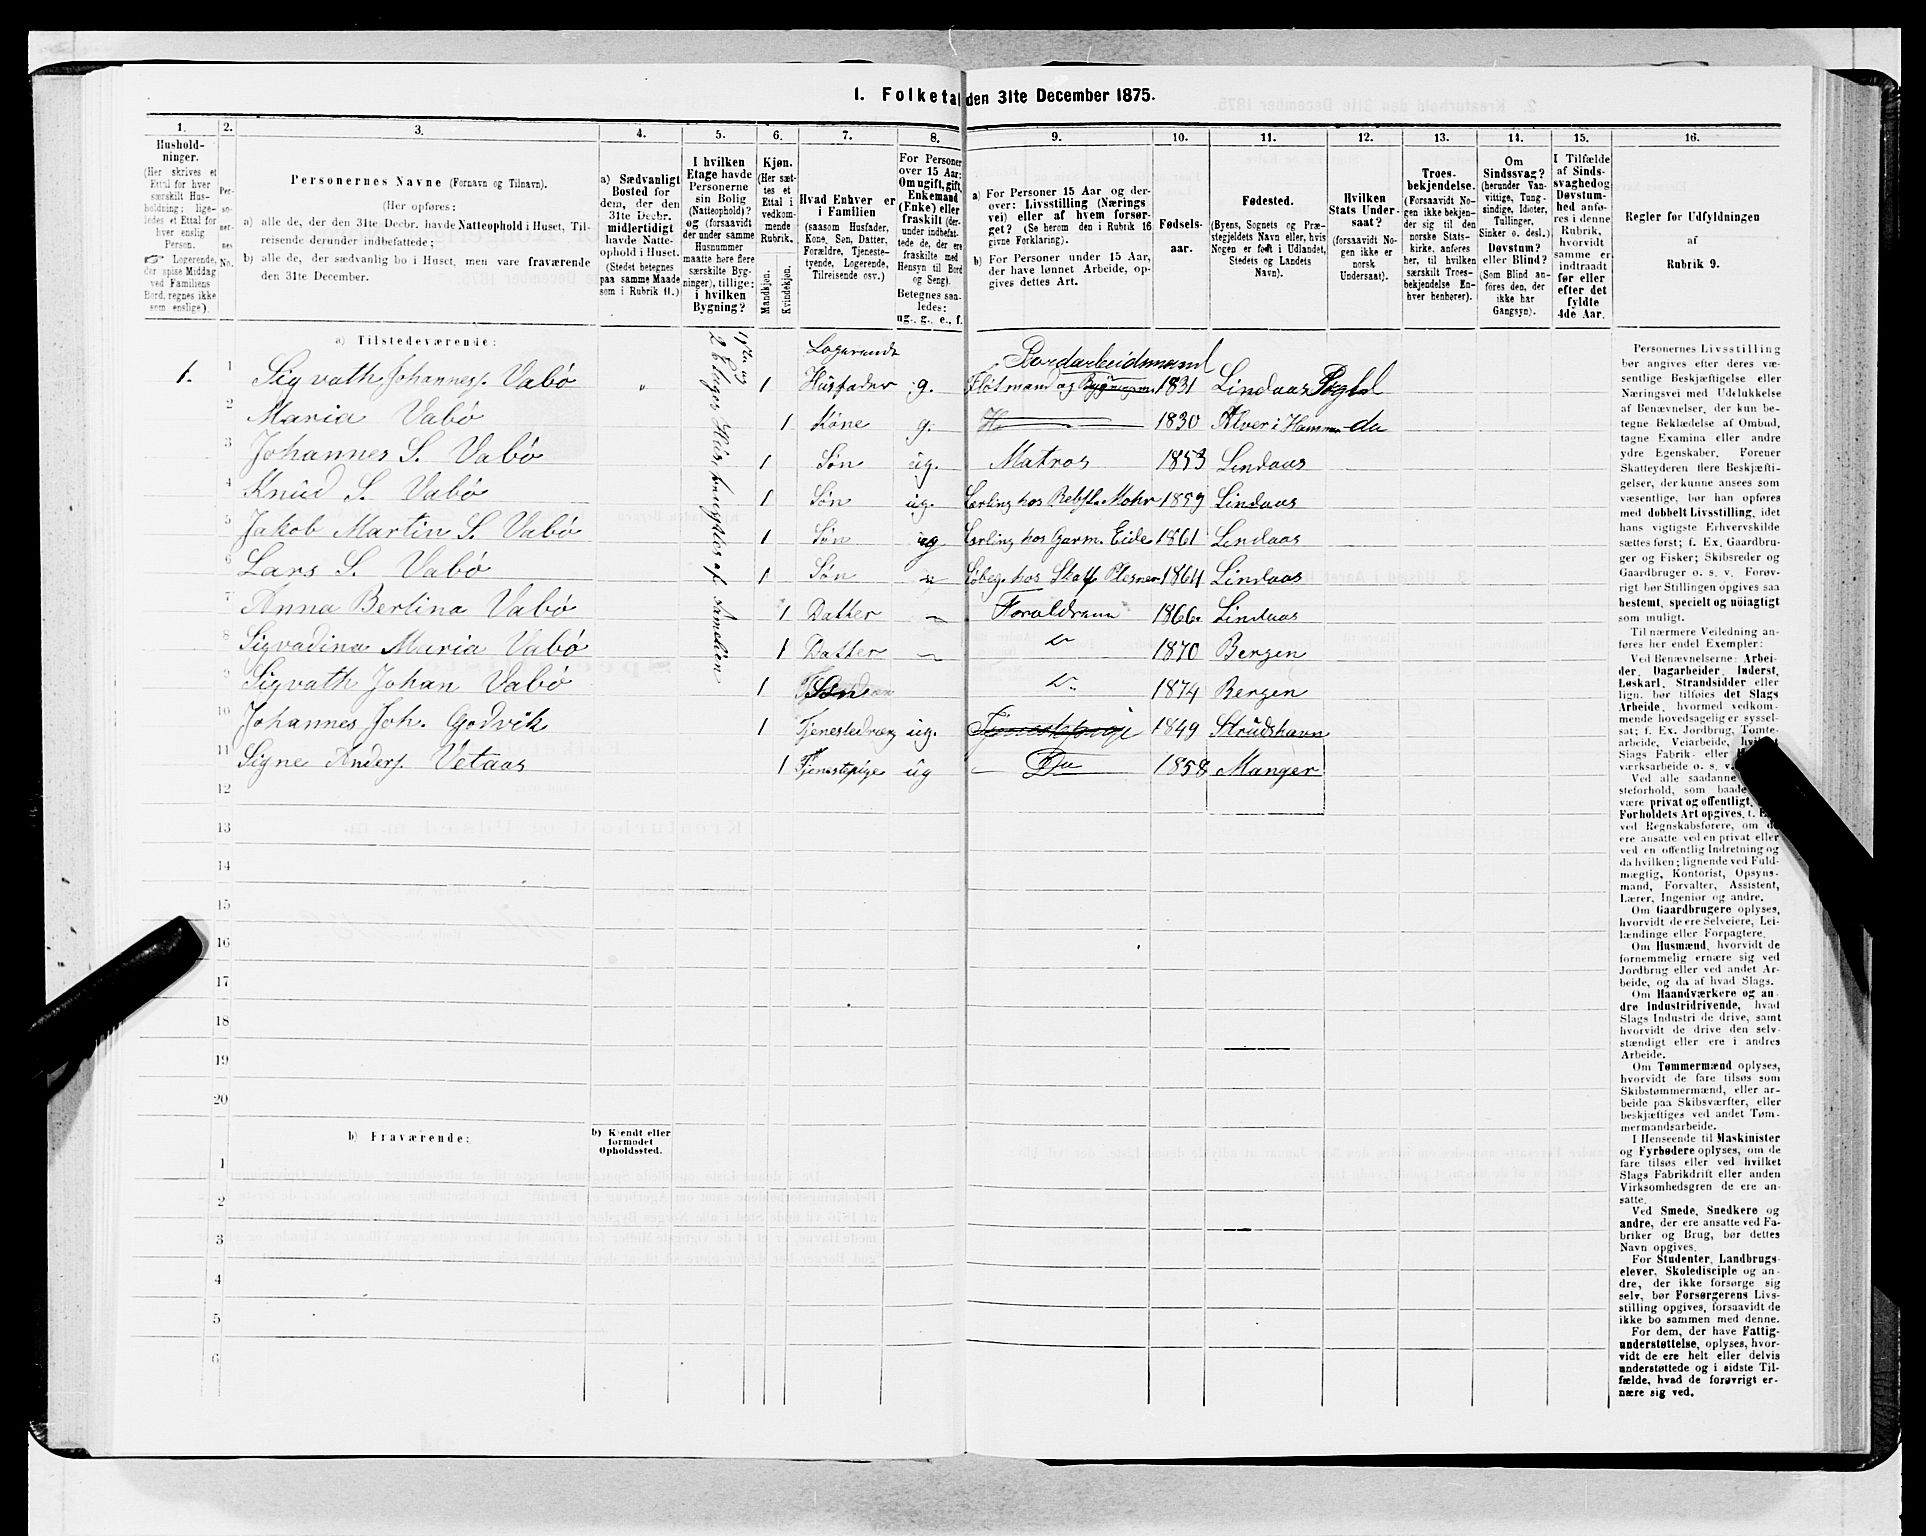 1. Folketal den 31te December 1875.
1. 2. 3. 4. 5. 6. 7. 8. 9. 10. 11. 12. 13. 14. 15. 16.
Hushold-
ninger.
(Her skrives et
Ettal for hver
særskilt Hus-
holdning; lige-
ledes et Ettal for
hver enslig
Person.
☞ Logerende,
der spise Middag
ved Familiens
Bord, regnes ikke
som enslige).
Per-
so-
ner-
nes
No.
Personernes Navne (Fornavn og Tilnavn).
(Her opføres:
a) alle de, der den 31te Decbr. havde Natteophold i Huset, Til-
reisende derunder indbefattede;
b) alle de, der sædvanlig bo i Huset, men vare fraværende
den 31te December.
a) Sædvanligt
Bosted for
dem, der den
31te Decbr.
midlertidigt
havde Natte-
ophold i Huset.
(Stedet betegnes
paa samme Maade
som i Rubrik 11.)
I hvilken
Etage havde
Personerne
sin Bolig
(Natteophold)?
og (forsaavidt
der under samme
Husnummer
maatte høre flere
særskilte Byg-
ninger), tillige:
i hvilken
Bygning?
Kjøn.
(Her sæt-
tes et
Ettal i
vedkom-
mende
Rubrik.
Mandkjøn.
Kvindekjøn.
Hvad Enhver er
i Familien
(saasom Husfader,
Kone, Søn, Datter,
Forældre, Tjeneste-
tyende, Logerende,
Tilreisende osv.)
For Personer
over 15 Aar:
Om ugift, gift,
Enkemand
(Enke) eller
fraskilt (der-
under indbefat-
tede de, der ere
fraskilte med
Hensyn til Bord
og Seng).
Betegnes saa-
ledes:
ug., g., e., f.
a) For Personer 15 Aar og der-
over: Livsstilling (Nærings
vei) eller af hvem forsør-
get? (Se herom den i Rubrik 16
givne Forklaring).
b) For Personer under 15 Aar,
der have lønnet Arbeide, op-
gives dettes Art.
Fødsels-
aar.
Fødested.
(Byens, Sognets og Præ-
stegjeldets Navn eller, hvis
Nogen er født i Udlandet,
Stedets og Landets
Navn).
Hvilken
Stats Under-
saat?
(forsaavidt No-
gen ikke er
norsk
Undersaat).
Troes-
bekjendelse.
(Forsaavidt No-
gen ikke bekjen-
der sig til den
norske Stats-
kirke, anføres
her, til hvilken
særskilt Troes-
bekjendelse En-
hver henhører).
Om
Sindssvag?
(herunder Van-
vittige, Tung-
sindige, Idioter,
Tullinger,
Sinker o. desl.)
Døvstum?
eller Blind?
(Som Blind an-
føres den, der
ikke har
Gangsyn).
I Tilfælde
af Sinds-
svaghedog
Døvstum-
hed anfø-
res i denne
Rubrik,
hvorvidt
samme er
indtraadt
før eller
efter det
fyldte
4de Aar.
Regler for Udfyldningen
af
Rubrik 9.
a) Tilstedeværende:
1ste og
2 Etager Hus benyttes af Familien
1. 1 Sigvath Johannes. Vabø " 1 Logerende Husfader g. Flötmand og Bordarbeidsmand 1831 Lindaas Prgld
2 Maria Vabø 1 Kone g. 1830 Alver i Hammer do
3 Johannes S. Vabø 1 Søn ug. Matros 1853 Lindaas
4 Knud S. Vabø 1 Søn ug. Lærling hos Rebsl. Mohr 1859 Lindaas
5 Jakob Martin S. Vabø 1 Søn ug Lærling hos Garm. Eide 1861 Lindaas
6 Lars S. Vabø 1 Søn " Løbeg. hos Plesner 1864 Lindaas
7 Anna Bertina Vabø 1 Datter " Forældrene 1866 Lindaas
8 Sigvadina Maria Vabø 1 Datter " " 1870 Bergen
9 Sigvath Johan Vabø 1 Søn " 1874 Bergen
10 Johannes Joh. Godvik 1 Tjenestedræng ug. Tjenestepige 1849 Strudshavn
11 Signe Anders. Vetaas 1 Tjenestepige ug Do 1858 Manger
12
13
14
15
16
17
18
19
20
b) Fraværende:
b) Kjendt eller
formodet
Opholdssted.
1
2
3
4
5
6
Personernes Livsstilling
bør angives efter deres væ-
sentlige Beskjæftigelse eller
Næringsvei med Udelukkelse
af Benævnelser, der kun be-
tegne Beklædelse af Ombud,
tagne Examina eller andre
ydre Egenskaber. Forener
Skatteyderen flere Beskjæfti-
gelser, der kunne ansees som
væsentlige, bør han opføres
med dobbelt Livsstilling, idet
hans vigtigste Erhvervskilde
sættes først; f. Ex. Gaardbru-
ger og Fisker; Skibsreder og
Gaardbruger o. s. v. Forøv-
rigt bør Stillingen opgives saa
bestemt, specielt og nøiagtigt
som muligt.
Til nærmere Veiledning an-
føres her endel Exempler:
Ved Benævnelserne: Arbei-
der, Dagarbeider, Inderst,
Løskarl, Strandsidder eller
lign. bør tilføies det Slags
Arbeide, hvormed vedkom-
mende hovedsagelig er syssel-
sat; f. Ex. Jordbrug, Tomte-
arbeide, Veiarbeide, hvilket
Slags Fabrik- eller
værksarbeide o. s. v.
Ved alle saadanne
steforhold, som baade
være privat og offentligt,
Forholdets Art opgives,
ved Regnskabsførere, om de
ere ansatte ved en privat eller
ved en offentlig Indretning og
da hvilken; lignende ved Fuld-
mægtig, Kontorist, Opsyns-
mand, Forvalter, Assistent,
Lærer, Ingeniør og andre.
Om Gaardbrugere oplyses,
hvorvidt de ere Selveiere, Lei-
lændinge eller Forpagtere.
Om Husmænd, hvorvidt de
fornemmelig ernære sig ved
Jordbrug eller ved andet Ar-
beide, og da af hvad Slags.
Om Haandværkere og an
dre Industridrivende, hvad
Slags Industri de drive, samt
hvorvidt de drive den selv-
stændigt eller ere i andres
Arbeide.
Om Tømmermænd oplyses,
hvorvidt de fare tilsøs som
Skibstømmermænd, eller ar-
beide paa Skibsværfter, eller
beskjæftiges ved andet Tøm-
mermandsarbeide.
I Henseende til Maskinister
og Fyrbødere oplyses, om de
fare tilsøs eller ved hvilket
Slags Fabrikdrift eller anden
Virksomhedsgren de ere an-
satte.
Ved Smede, Snedkere og
andre, der ere ansatte ved Fa-
briker og Brug, bør dettes
Navn opgives.
For Studenter, Landbrugs-
elever, Skoledisciple og an-
dre, der ikke forsørge sig
selv, bør Forsørgerens Livs-
stilling opgives, forsaavidt de
ikke bo sammen med denne.
For dem, der have Fattig-
understøttelse, oplyses, hvor-
vidt de ere helt eller delvis
understøttede og i sidste Til-
fælde, hvad de forøvrigt er-
nære sig ved.